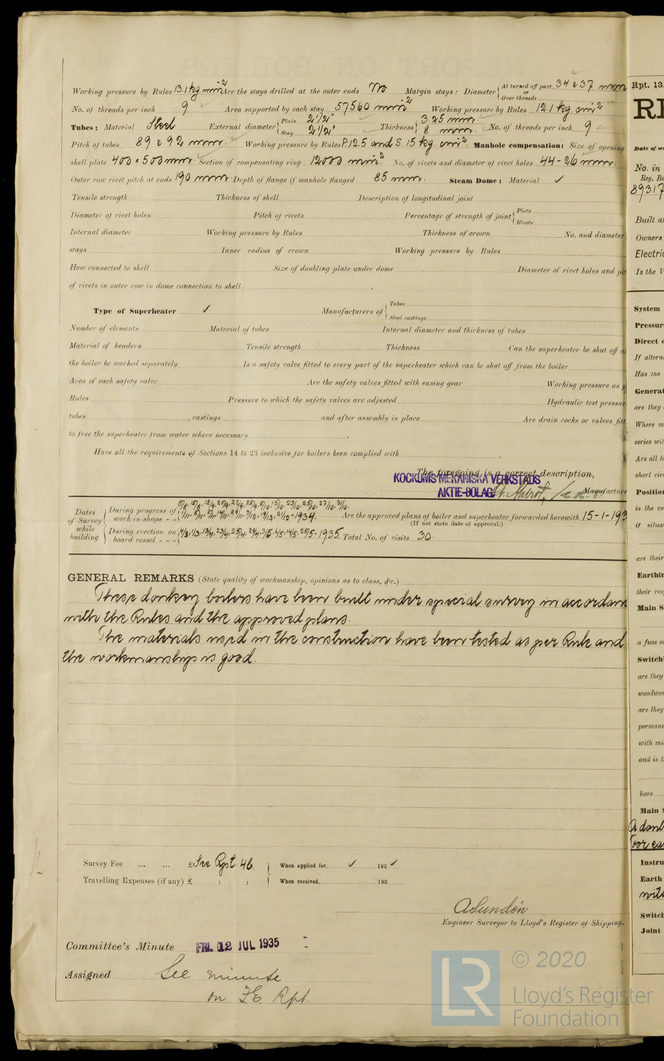 Working pressure by Rules 13.1 kg mm-2 Are the stays drilled at the outer ends No Margin stays: Diameter { At turned off part 34 & 37 mm or Over threads
No. of threads per inch 9 Area supported by each stay 57560 mm2 Working pressure by Rules 12.1 kg cm-2
Tubes: Material Steel External diameter { Plain 2 1/2" Stay 2 1/2" Thickness { 3.25 mm 8 mm No. of threads per inch 9
Pitch of tubes 89 & 92 mm Working pressure by Rules P. 12.5 and S. 15 kg cm-2 Manhole compensation: Size of opening
shell plate 400 x 500 mm Section of compensating ring 12000 mm2 No. of rivets and diameter of rivet holes 44-26 mm
Outer row rivet pitch at ends 190 mm Depth of flange if manhole flanged 85 mm Steam Dome: Material ✓
Tensile strength Thickness of shell Description of longitudinal joint
Diameter of rivet holes Pitch of rivets Percentage of strength of joint { Plate Rivets
Internal diameter Working pressure by Rules Thickness of crown No. and diameter
stays Inner radius of crown Working pressure by Rules
How connected to shell Size of doubling plate under dome Diameter of rivet holes and
of rivets in outer row in dome connection to shell
Type of Superheater ✓ Manufacturers of { Tubes Steel castings
Number of elements Material of tubes Internal diameter and thickness of tubes
Material of headers Tensile strength Thickness Can the superheater be shut off
the boiler be worked separately Is a safety valve fitted to every part of the superheater which can be shut off from the boiler
Area of each safety valve Are the safety valves fitted with easing gear Working pressure as
Rules Pressure to which the safety valves are adjusted Hydraulic test pressure
tubes , castings and after assembly in place Are drain cocks or valves
to free the superheater from water where necessary
Have all the requirements of Sections 14 to 23 inclusive for boilers been complied with
The foregoing is a correct description,
KOCKUMS MEKANISKA VERKSTADS
AKTIE-BOLAG Manufacture
Dates of Survey while building { During progress of work in shops - - 1934 Are the approved plans of boiler and superheater forwarded herewith 15-1-193
(If not state date of approval.)
During erection on board vessel - - - 1935 Total No. of visits 30.
GENERAL REMARKS (State quality of workmanship, opinions as to class, &c.)
These donkey boilers have been built under special survey in accordan
with the Rules and the approved plans.
The materials used in the construction have been tested as per Rule and
the workmanship is good.
Survey Fee ... ... £ See Rpt. 4b. When applied for, ✓ 193 ✓
Travelling Expenses (if any) £ : : When received, 193
A Sundén
Engineer Surveyor to Lloyd's Register of Shipping.
Committee's Minute FRI. 12 JUL 1935
Assigned See minute
on F.E. Rpt.
© 2020
LR Lloyd's Register
Foundation
Rpt. 13.
No. in
Reg. Bo
89317
Built a
Owners
Electric
Is the
System
Pressure
Direct
If altern
Has the
Generat
are they
Where m
series wit
Are all
short circ
Position
is the ve
if situa
are their
Earthin
their res
Main S
a fuse o
Switch
are they
woodwor
are they
permane
with mi
and is
bars
Main
Instru
Earth
Switch
Joint